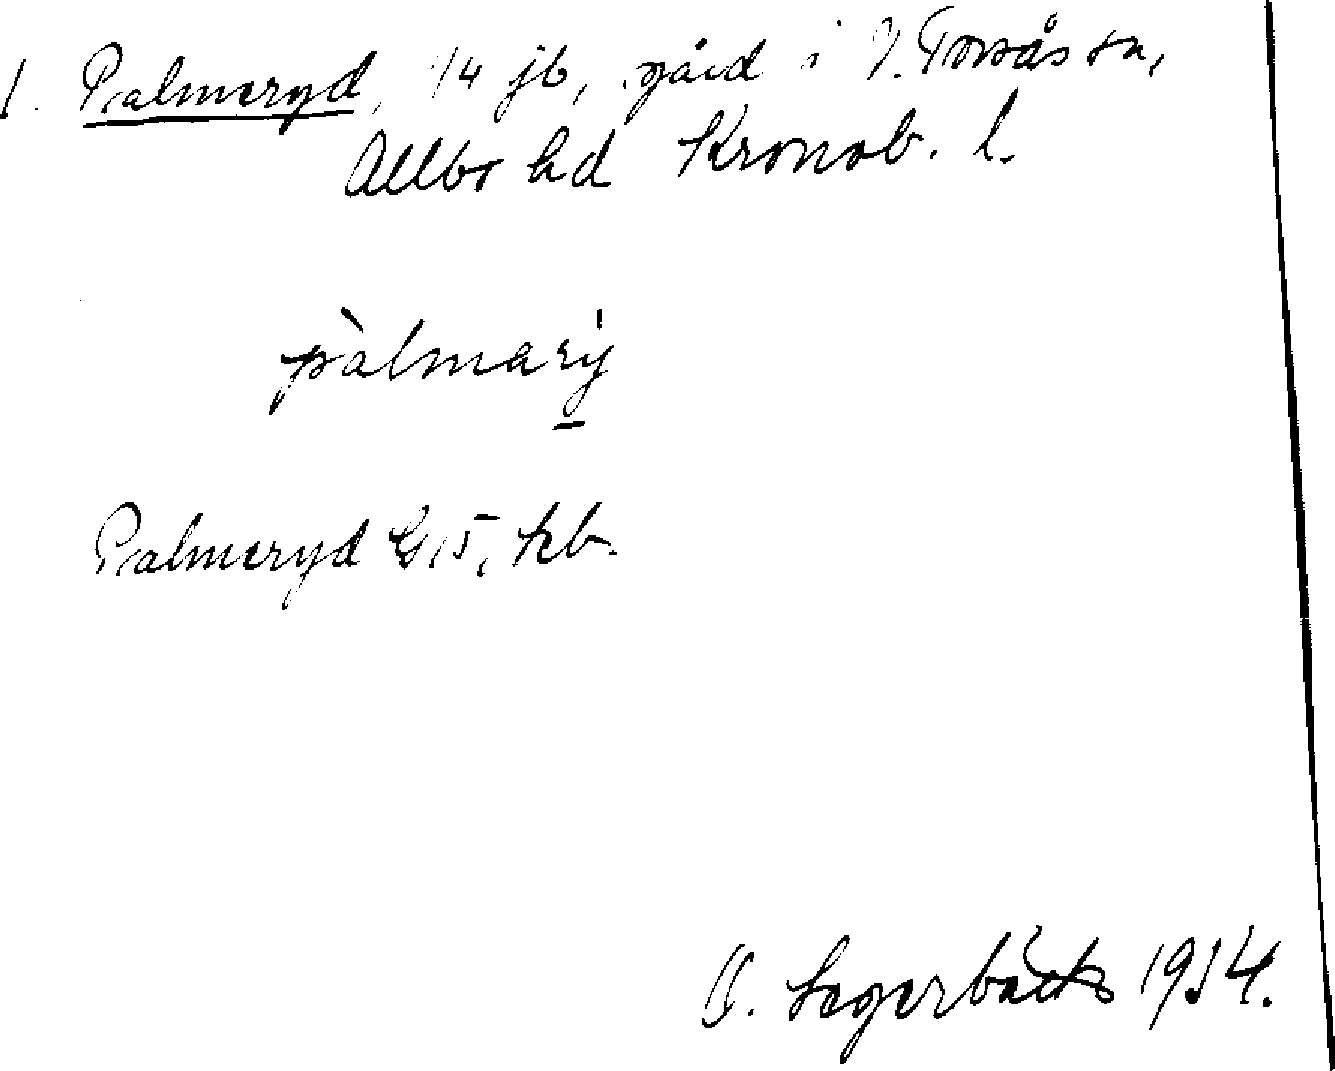 1. Palmeryd, 1/4 jb, gård i V. Torsås sn,
Allbo hd Kronob. l.
pàlmarý
Palmeryd G 15, kb.
Lagerbäcks 1914.